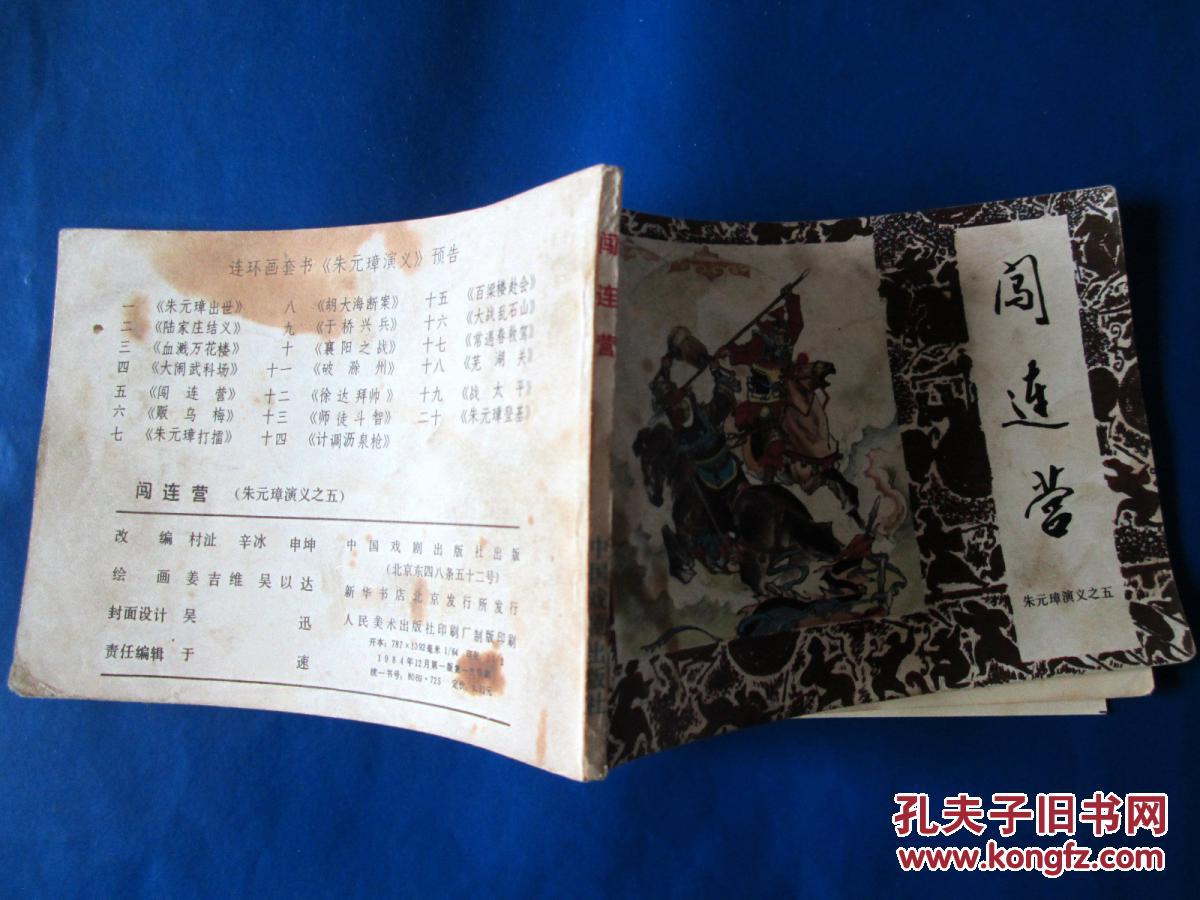 连环画套书《朱元璋演义》预告
一 《朱元璋出世》 八 《胡大海断案》 十五 《百梁楼赴会》
二 《陆家庄结义》 九 《于桥兴兵》 十六 《大战乱石山》
三 《血溅万花楼》 十 《襄阳之战》 十七 《常遇春救驾》
四 《大闹武科场》 十一 《破滁州》 十八 《芜湖关》
五 《闯连营》 十二 《徐达拜帅》 十九 《战太平》
六 《贩乌梅》 十三 《师徒斗智》 二十 《朱元璋登基》
七 《朱元璋打擂》 十四 《计调沥泉枪》
闯连营 (朱元璋演义之五)
改编 村沚 辛冰 申坤
绘画 姜吉维 吴以达
封面设计 吴迅
责任编辑 于速
中国戏剧出版社出版
(北京东四八条五十二号)
新华书店北京发行所发行
人民美术出版社印刷厂制版印刷
开本:787×1092毫米 1/64
1984年12月第一版第一
统一书号:8069·725 定价:
闯连营
中国戏剧出版社
闯连营
朱元璋演义之五
孔夫子旧书网
www.kongfz.com